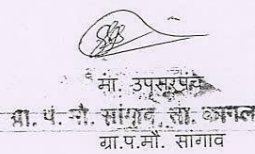 मा. उपसरपंच
ग्रा. पं. मौ. सांगाव ता. कागल
ग्रा.प.मौ. सांगाव